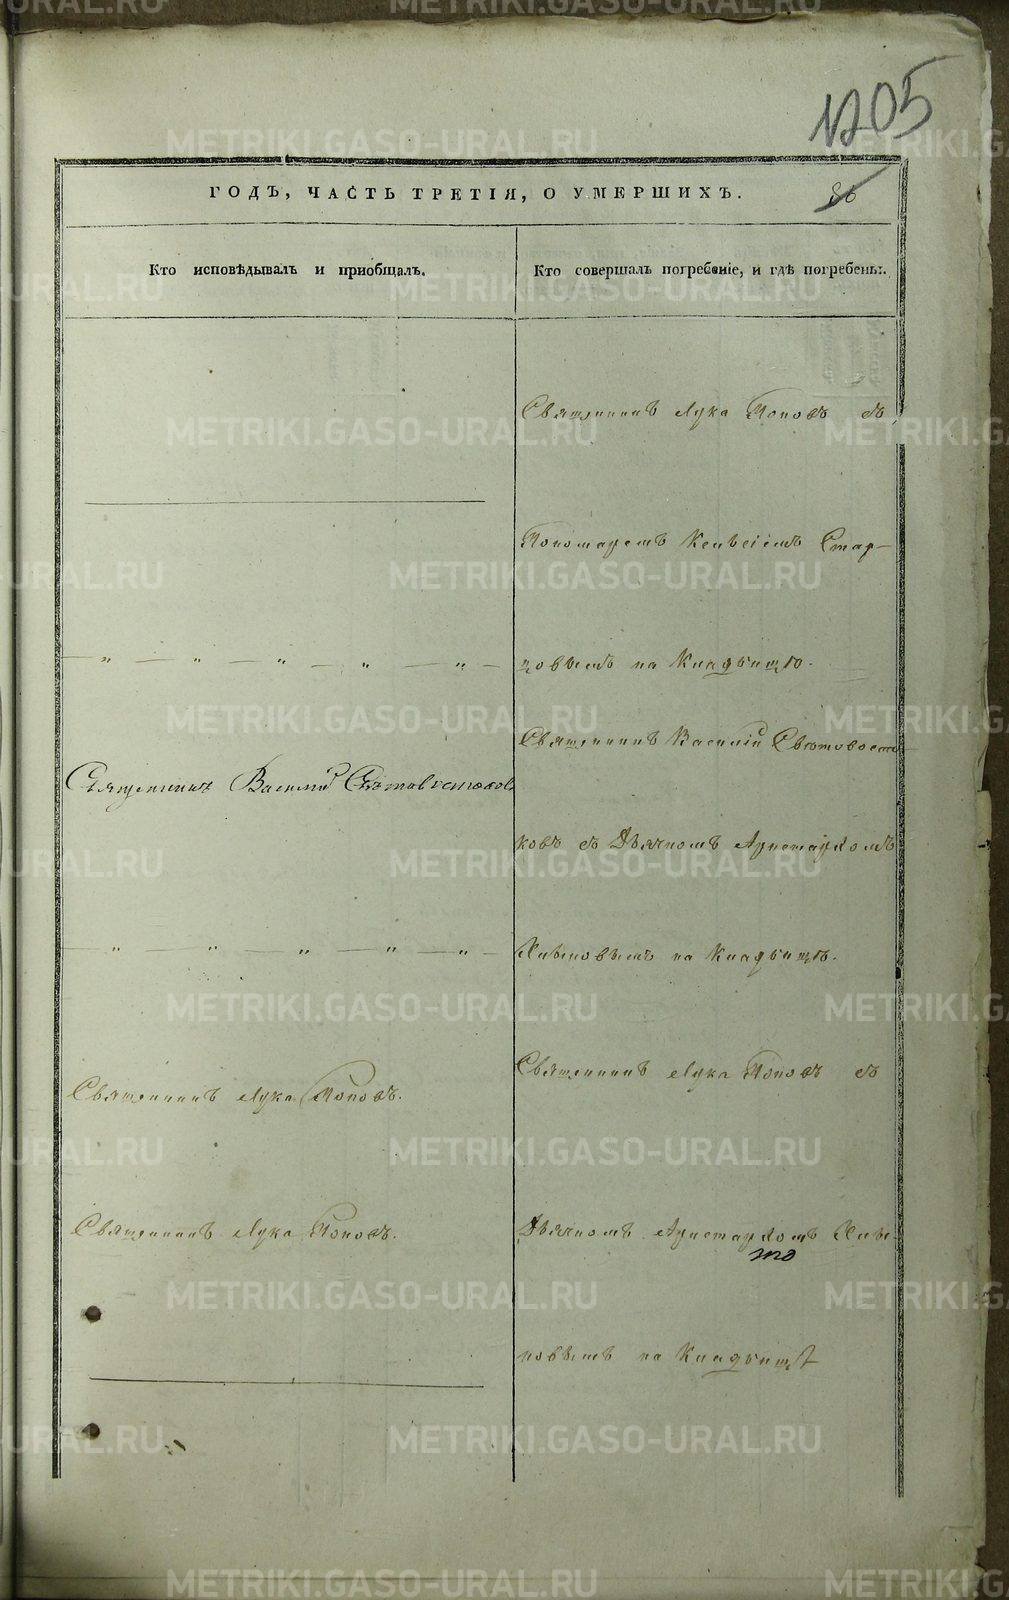 1205
ГОДЪ, ЧАСТЬ ТРЕТІЯ, О УМЕРШИХЪ.
86
Кто исповѣдывалъ и приобщалъ.
Кто совершалъ погребеніе, и гдѣ погребены.
Священникъ Лука Поповъ съ
Пономаремъ Стар-
цовымъ на Кладбищѣ.
Священникъ Василій
Священникъ Василій
ковъ съ Дьячкомъ Аристархомъ
Хлыновымъ на Кладбищѣ.
Священникъ Лука Поповъ съ
Священникъ Лука Поповъ.
Священникъ Лука Поповъ.
Дьячкомъ Аристархомъ Хлы-
новымъ на Кладбищѣ
METRIKI.GASO-URAL.RU